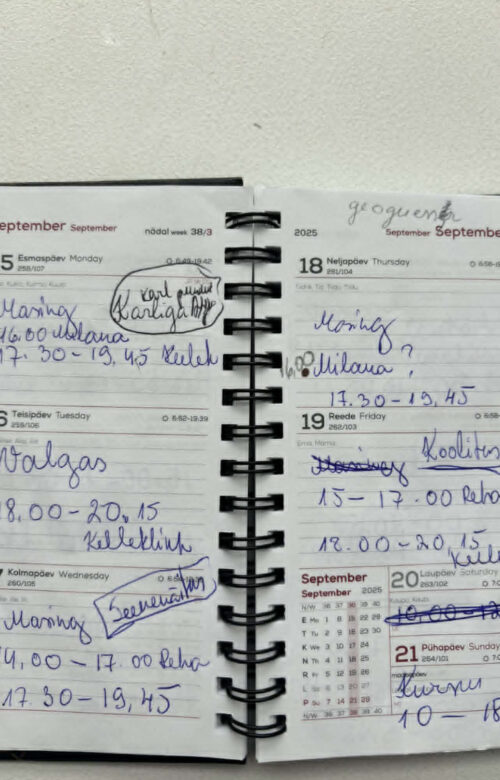 September September nädal week 38/3
5 Esmaspäev Monday
258/107
Masing
Karl
Karliga
16.00 Milana
17.30-19,45
6 Teisipäev Tuesday 6:52-19:39
259/106
Valgas
18.00-20.15
Kolmapäev Wednesday
260/105
Masing
17.00 Reha
17.30-19,45
2025 September September
18 Neljapäev Thursday
261/104
Masing
16.00 Milana ?
17.30-19,45
19 Reede Friday
262/103
Masing Koolitus
15-17.00 Reha
18.00-20.15
September
September 2025
N/W 36 37 38 39 40
E Mo 1 8 15 22 29
T Tu 2 9 16 23 30
K We 3 10 17 24
N Th 4 11 18 25
R Fr 5 12 19 26
L Sa 6 13 20 27
P Su 7 14 21 28
N/W 36 37 38 39 40
20 Laupäev Saturday
263/102
21 Pühapäev Sunday
264/101
Kursus
10-18